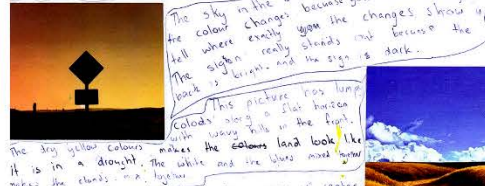 The sky in the
the colour changes because
tell where exactly you the changes show
The sign really stands out because the
back is bright and the sign is dark.
This picture has lump
colods along a flat horizon
with wavy hills in the front.
The dry yellow colours makes the colours land look like
it is in a drought. The white and the blues mixed together
makes the clouds mix together